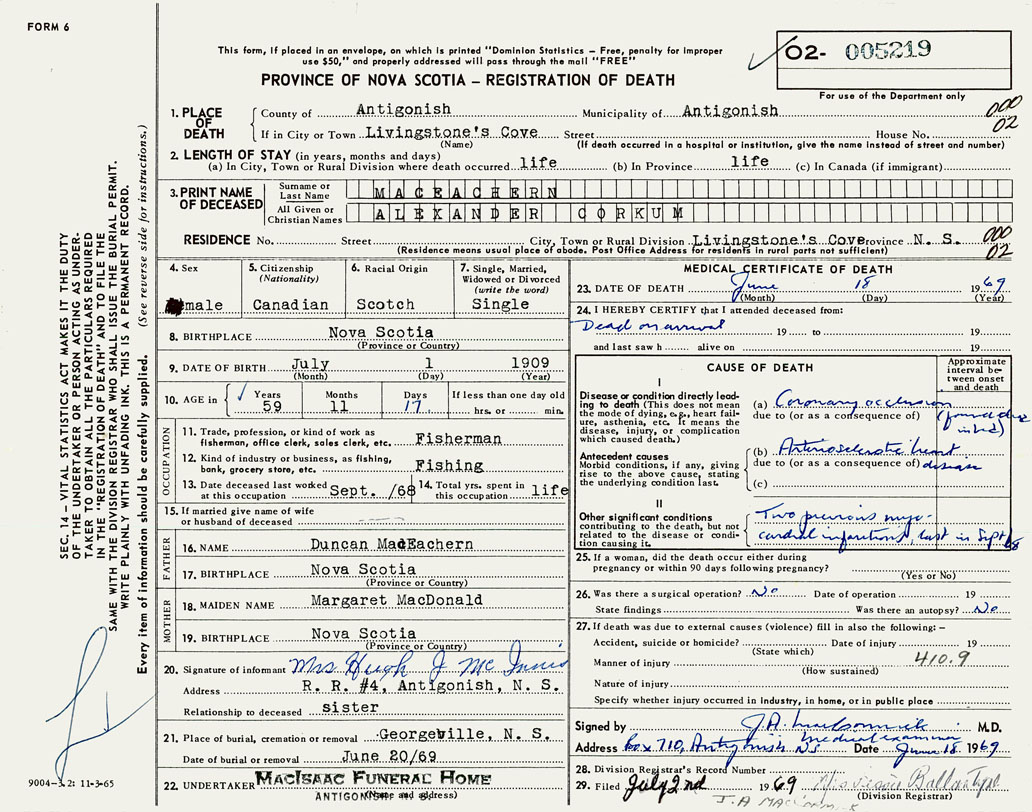 FORM 6
This form, if placed in an envelope, on which is printed "Dominion Statistics – Free, penalty for improper
use $50," and properly addressed will pass through the mail "FREE"
PROVINCE OF NOVA SCOTIA – REGISTRATION OF DEATH
02- 005219
For use of the Department only
1. PLACE OF DEATH
County of Antigonish Municipality of Antigonish 000
If in City or Town Livingstone's Cove Street House No. 02
(Name) (If death occurred in a hospital or institution, give the name instead of street and number)
2. LENGTH OF STAY (in years, months and days)
(a) In City, Town or Rural Division where death occurred life (b) In Province life (c) In Canada (if immigrant)
3. PRINT NAME OF DECEASED
Surname or Last Name MACEACHERN
All Given or Christian Names ALEXANDER CORKUM
RESIDENCE No. Street City, Town or Rural Division Livingstone's Cove Province N. S. 000
(Residence means usual place of abode. Post Office Address for residents in rural parts not sufficient) 02
4. Sex male
5. Citizenship (Nationality) Canadian
6. Racial Origin Scotch
7. Single, Married, Widowed or Divorced (write the word) Single
8. BIRTHPLACE Nova Scotia
(Province or Country)
9. DATE OF BIRTH July 1 1909
(Month) (Day) (Year)
10. AGE in Years 59 Months 11 Days 17 If less than one day old hrs. or min.
OCCUPATION
11. Trade, profession, or kind of work as
fisherman, office clerk, sales clerk, etc. Fisherman
12. Kind of industry or business, as fishing,
bank, grocery store, etc. Fishing
13. Date deceased last worked
at this occupation Sept. /68
14. Total yrs. spent in
this occupation life
15. If married give name of wife
or husband of deceased
FATHER
16. NAME Duncan MacEachern
17. BIRTHPLACE Nova Scotia
(Province or Country)
MOTHER
18. MAIDEN NAME Margaret MacDonald
19. BIRTHPLACE Nova Scotia
(Province or Country)
20. Signature of informant Mrs Hugh J McInnis
Address R. R. #4, Antigonish, N. S.
Relationship to deceased sister
21. Place of burial, cremation or removal Georgeville, N. S.
Date of burial or removal June 20/69
22. UNDERTAKER MACISAAC FUNERAL HOME
(Name and address)
ANTIGONISH
MEDICAL CERTIFICATE OF DEATH
23. DATE OF DEATH June 18 1969
(Month) (Day) (Year)
24. I HEREBY CERTIFY that I attended deceased from:
Dead on arrival 19 to 19
and last saw h alive on 19
CAUSE OF DEATH
Approximate interval between onset and death
I
Disease or condition directly leading to death (This does not mean the mode of dying, e.g., heart failure, asthenia, etc. It means the disease, injury, or complication which caused death.)
(a) Coronary occlusion
due to (or as a consequence of)
Antecedent causes
Morbid conditions, if any, giving rise to the above cause, stating the underlying condition last.
(b) Arteriosclerotic heart
due to (or as a consequence of) disease
(c)
II
Other significant conditions contributing to the death, but not related to the disease or condition causing it.
Two previous myo-
cardial infarctions, last in Sept 68
25. If a woman, did the death occur either during
pregnancy or within 90 days following pregnancy?
(Yes or No)
26. Was there a surgical operation? No Date of operation 19
State findings Was there an autopsy? No
27. If death was due to external causes (violence) fill in also the following: –
Accident, suicide or homicide? Date of injury 19
(State which)
Manner of injury 410.9
(How sustained)
Nature of injury
Specify whether injury occurred in industry, in home, or in public place
Signed by J.A. MacCormick M.D.
medical examiner
Address Box 710, Antigonish NS Date June 18 1969
28. Division Registrar's Record Number
29. Filed July 2nd 1969 Ballantyne
(Division Registrar)
J.A MacCormick
SEC. 14 – VITAL STATISTICS ACT MAKES IT THE DUTY
OF THE UNDERTAKER OR PERSON ACTING AS UNDER-
TAKER TO OBTAIN ALL THE PARTICULARS REQUIRED
IN THE "REGISTRATION OF DEATH" AND TO FILE THE
SAME WITH THE DIVISION REGISTRAR WHO SHALL ISSUE THE BURIAL PERMIT.
WRITE PLAINLY WITH UNFADING INK. THIS IS A PERMANENT RECORD.
Every item of information should be carefully supplied. (See reverse side for instructions.)
9004-3.2: 11-3-65